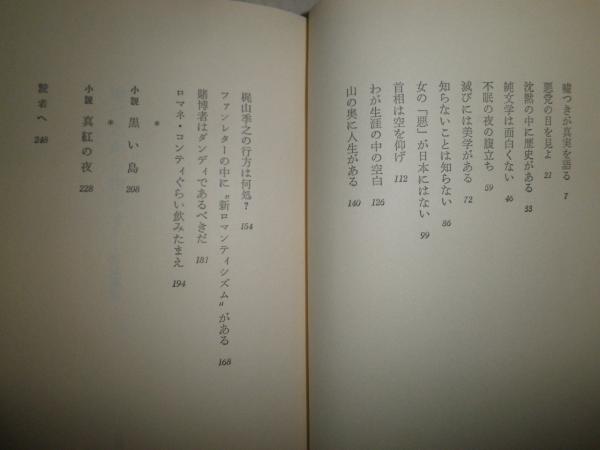 嘘つきが真実を語る 7
悪党の目を見よ 21
沈黙の中に歴史がある 33
純文学は面白くない 46
不眠の夜の腹立ち 59
滅びには美学がある 72
知らないことは知らない 86
女の「悪」が日本にはない 99
首相は空を仰げ 112
わが生涯の中の空白 126
山の奥に人生がある 140
梶山季之の行方は何処？ 154
ファンレターの中に〝新ロマンティシズム〟がある 168
賭博者はダンディであるべきだ 181
ロマネ・コンティぐらい飲みたまえ 194
＊
小説 黒い島 208
＊
小説 真紅の夜 228
読者へ 248